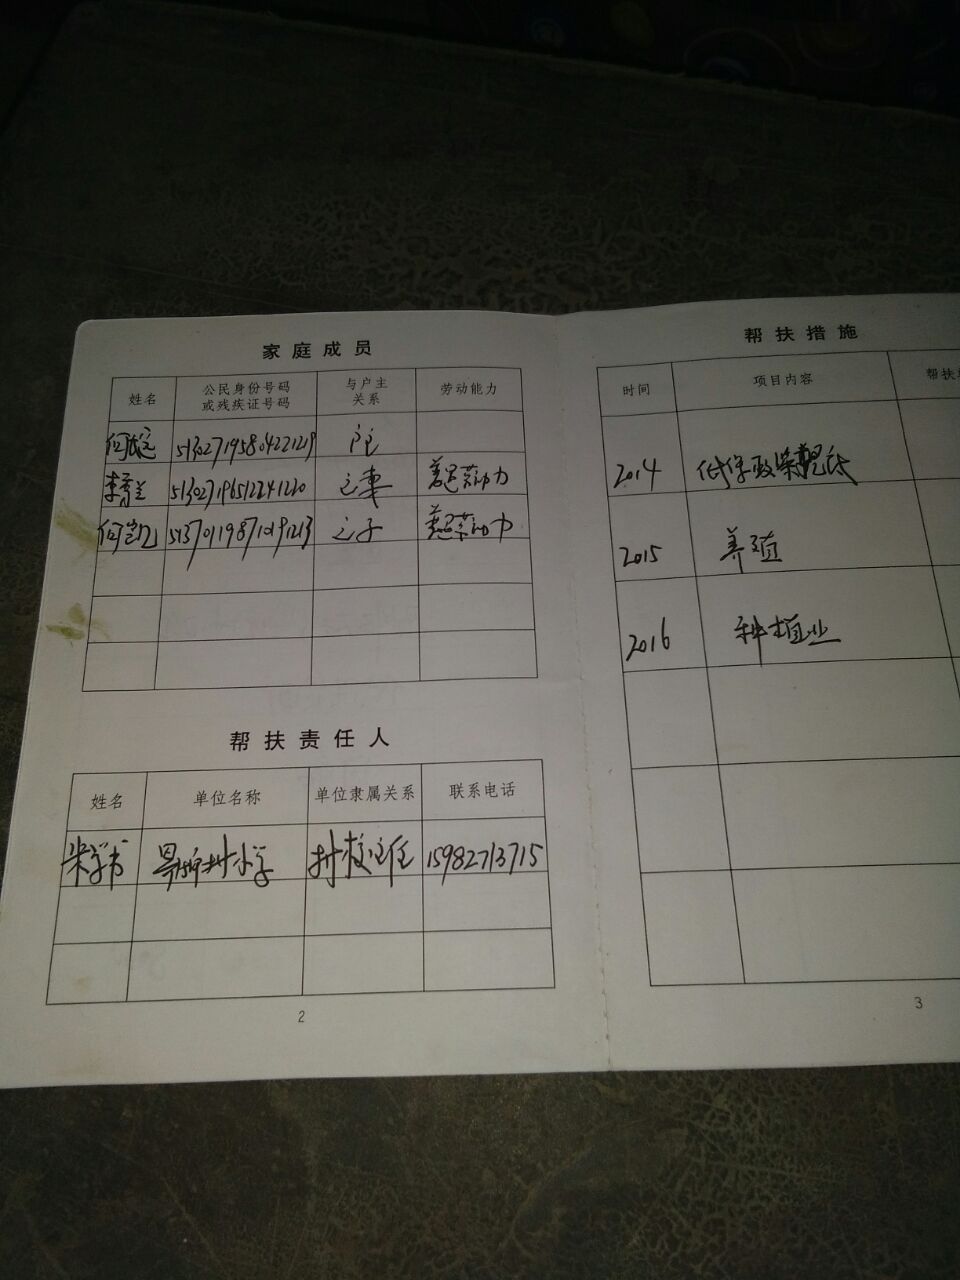 家庭成员
姓名 公民身份号码或残疾证号码 与户主关系 劳动能力
513027195804221219 户主
李 513027196512241220 之妻 普通劳动力
何凯 513701198710191213 之子 普通劳动力
帮扶责任人
姓名 单位名称 单位隶属关系 联系电话
村小学 村校主任 15982713715
2
帮扶措施
时间 项目内容 帮扶
2014
2015 养殖
2016 种植业
3